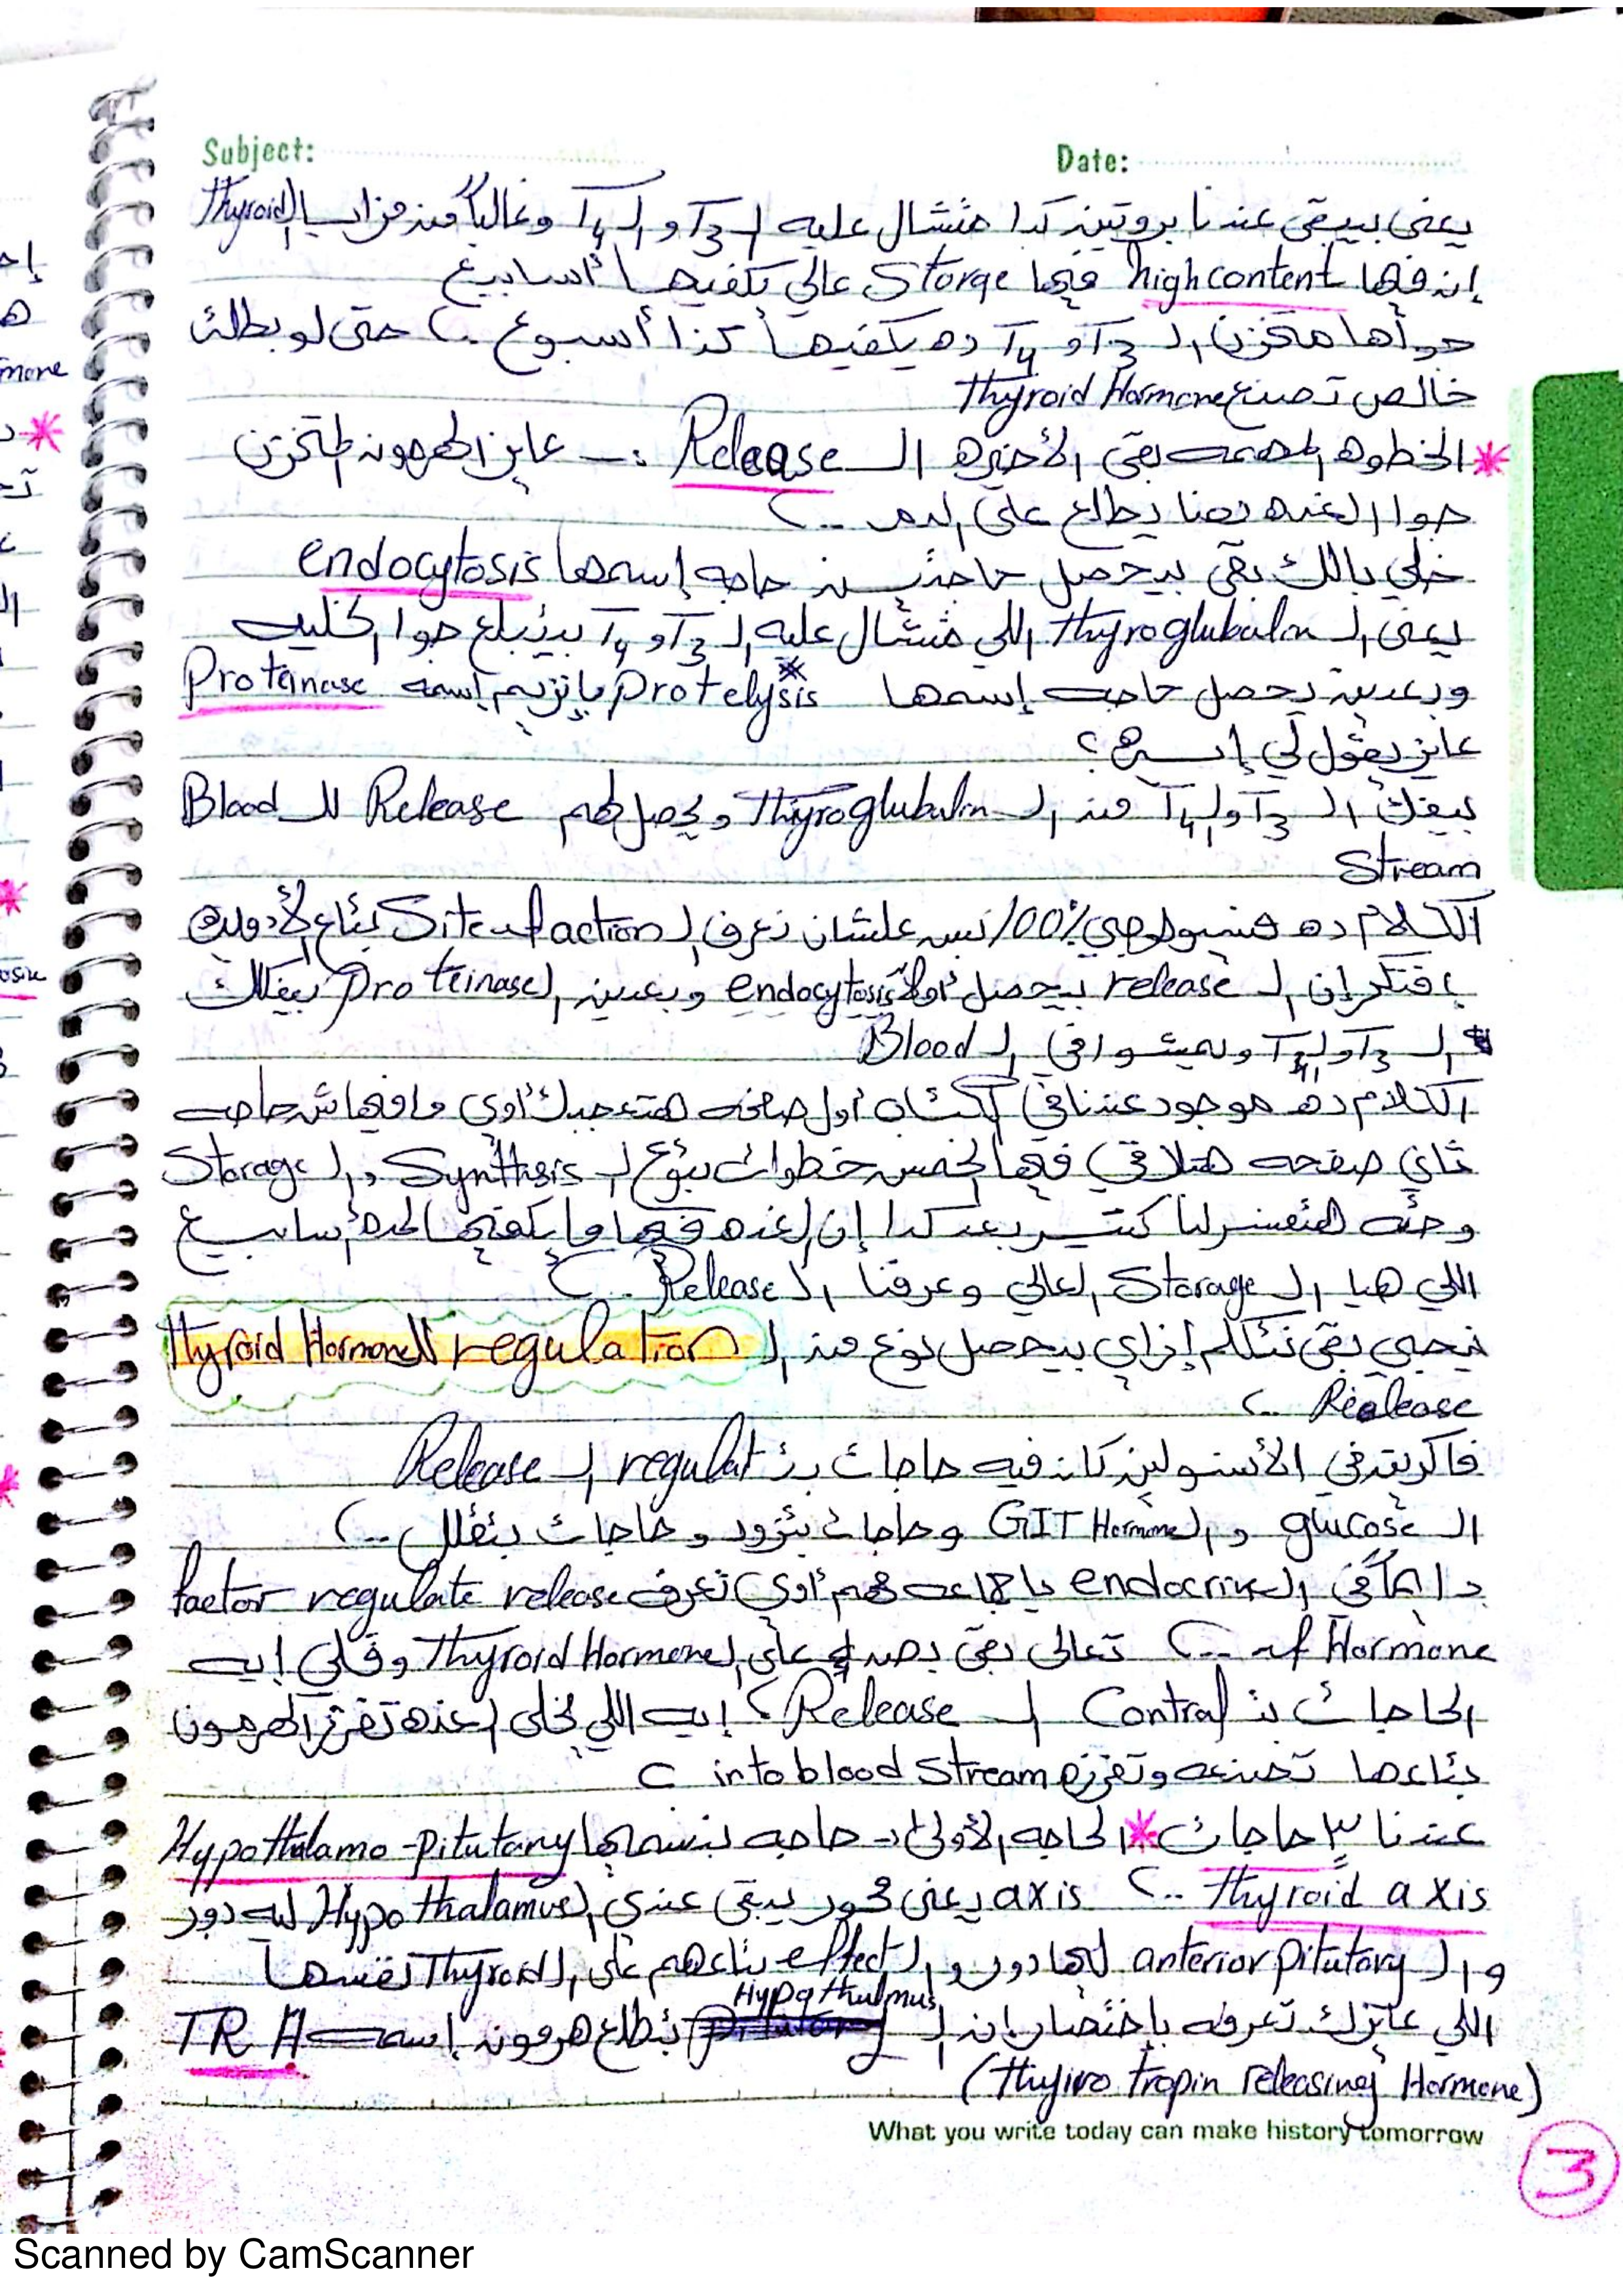 Subject: Date:
يعنى بيبقى عندنا بروتين كدا متشال عليه الـ T3 و الـ T4 وغالباً من مزايا الـ Thyroid
إن فيها high content فيها Storge عالي يكفيها أسابيع
جواها مخزن الـ T3 و T4 ده يكفيها كذا أسبوع .. حتى لو بطلت
خالص تصنيع Thyroid Hormone
* الخطوه المهمه بقى الأخيره الـ Release :- عايز الهرمون المتخزن
جوا الغده بقنا يطلع على الدم ..
خلي بالك بقى بيحصل حاجتين حاجه إسمها endocytosis
يعنى الـ Thyroglubulin اللي متشال عليه الـ T3 و T4 بيتبلع جوا الخليه
وبعدين يحصل حاجه إسمها Protelysis بإنزيم إسمه Proteinase
عايز يقول لي إيه؟
بيفك الـ T3 و الـ T4 من الـ Thyroglubulin و يحصل لهم Release للـ Blood
Stream
الكلام ده فسيولوجي 100% بس علشان نعرف الـ Site of action بتاع الأدويه
إفتكر إن الـ release بيحصل أولاً endocytosis وبعدين الـ Proteinase بيفكك
الـ T3 و الـ T4 ويمشوا في الـ Blood
الكلام ده موجود عندنا في الكتاب أول صفحه هتعجبك أوي مافيهاش حاجه
تاني صفحه هتلاقي فيها الخمس خطوات بتوع الـ Synthsis و الـ Storage
وحته هتفسر لنا كتير بعد كدا إن الغده فيها ما يكفيها لمدة أسابيع
اللي هيا الـ Storage العالي وعرفنا الـ Release ..
نيجي بقى نتكلم إزاي بيحصل نوع من الـ regulation للـ Thyroid Hormone
Realease ..
فاكر يقى في الأنسولين كان فيه حاجات بتـ regulat الـ Release
الـ glucose و الـ GIT Hormone و حاجات بتزود و حاجات بتقلل ..
دايماً في الـ endocrine يا جماعه مهم أوي تعرف factor regulate release
of Hormone .. تعالى بقى بصلي على الـ Thyroid Hormone وقلي إيه
الحاجات بتـ Control الـ Release؟ إيه اللي يخلي الغده تفرز الهرمون
بتاعها تصنعه وتفرزه into blood Stream
عندنا ٣ حاجات * الحاجه الأولى :- حاجه بنسميها Hypothalamo-pitutary
Thyroid axis .. axis يعنى محور يبقى عندي الـ Hypothalamus ليه دور
و الـ anterior pitutary لها دور و الـ effect بتاعهم على الـ Thyroid نفسها
اللي عايزك تعرفه بإختصار إن الـ Hypothulmus بتطلع هرمون إسمه TRH
(Thyiro tropin releasing Hormone)
What you write today can make history tomorrow
3
Scanned by CamScanner